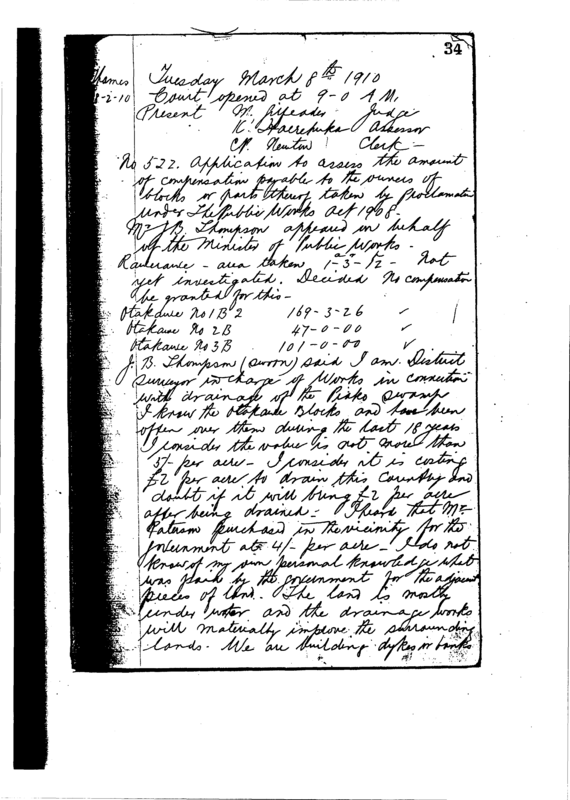 34
Thames Tuesday March 8th 1910
8-2-10 Court opened at 9-0 A.M.
Present M. Judge
K. Haerehuka Assessor
C.P. Newton Clerk -
No 522. Application to assess the amount
of compensation payable to the owners of
blocks or parts thereof taken by Proclamation
under The Public Works Act 1908.
Mr J.B. Thompson appeared in behalf
of the Minister of Public Works -
- area taken 1-3-½ - Not
yet investigated. Decided No compensation
be granted for this -
Otakawe No 1B2 169-3-26 ✓
Otakawe No 2B 47-0-00 ✓
Otakawe No 3B 101-0-00 ✓
J. B. Thompson (sworn) said I am District
Surveyor in charge of Works in connection
with drainage of the Piako swamp
I know the Otakawe Blocks and have been
often over them during the last 18 years
I consider the value is not more than
5/- per acre - I consider it is costing
£2 per acre to drain this Country and
doubt if it will bring £2 per acre
after being drained - I heard that Mr
Paterson purchased in the vicinity for the
Government at 4/- per acre - I do not
know of my own personal knowledge what
was paid by the government for the adjacent
pieces of land. The land is mostly
under water and the drainage works
will materially improve the surrounding
lands. We are building dykes or banks